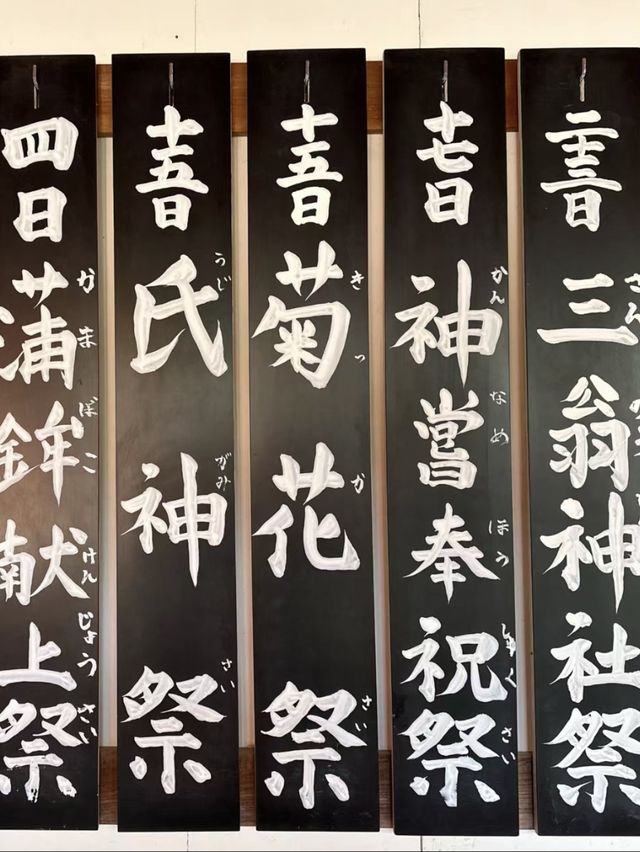 三翁神社祭
十七日 神嘗奉祝祭
かんなめほうしゅくさい
十五日 菊花祭
きっかさい
十五日 氏神祭
うじがみさい
四日 蒲鉾献上祭
かまぼこけんじょうさい